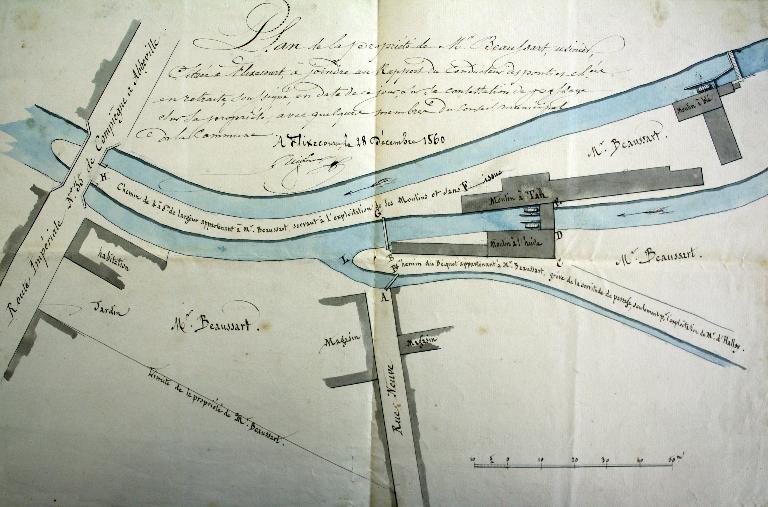 Plan de la propriété de Mr. Beaussart usinier
située à Flixecourt, à joindre au Rapport du Conducteur des ponts et ch.ées
en retraite soussigné en date de ce jour, sur la contestation de passage
sur la propriété, avec quelques membres du Conseil municipal
de la Commune
A Flixecourt le 28 Décembre 1860
Route Impériale N.º 35 de Compiègne à Abbeville
Chemin de 4 à 5m de largeur appartenant à Mr. Beaussart, servant à l'exploitation de ses Moulins et sans issue
Moulin à blé
Mr. Beaussart.
Moulin à Tan
Moulin à l'huile
Mr. Beaussart.
Chemin du Becquet appartenant à Mr. Beaussart, grevé de la servitude de passage seulement pr. l'exploitation de Mr. d'Halloy
H
G
F
E
D
C
L
B
A
habitation
Jardin
Mr. Beaussart.
Magasin
Magasin
Rue Neuve
Limite de la propriété de Mr. Beaussart.
10 5 0 10 20 30 40 50 m